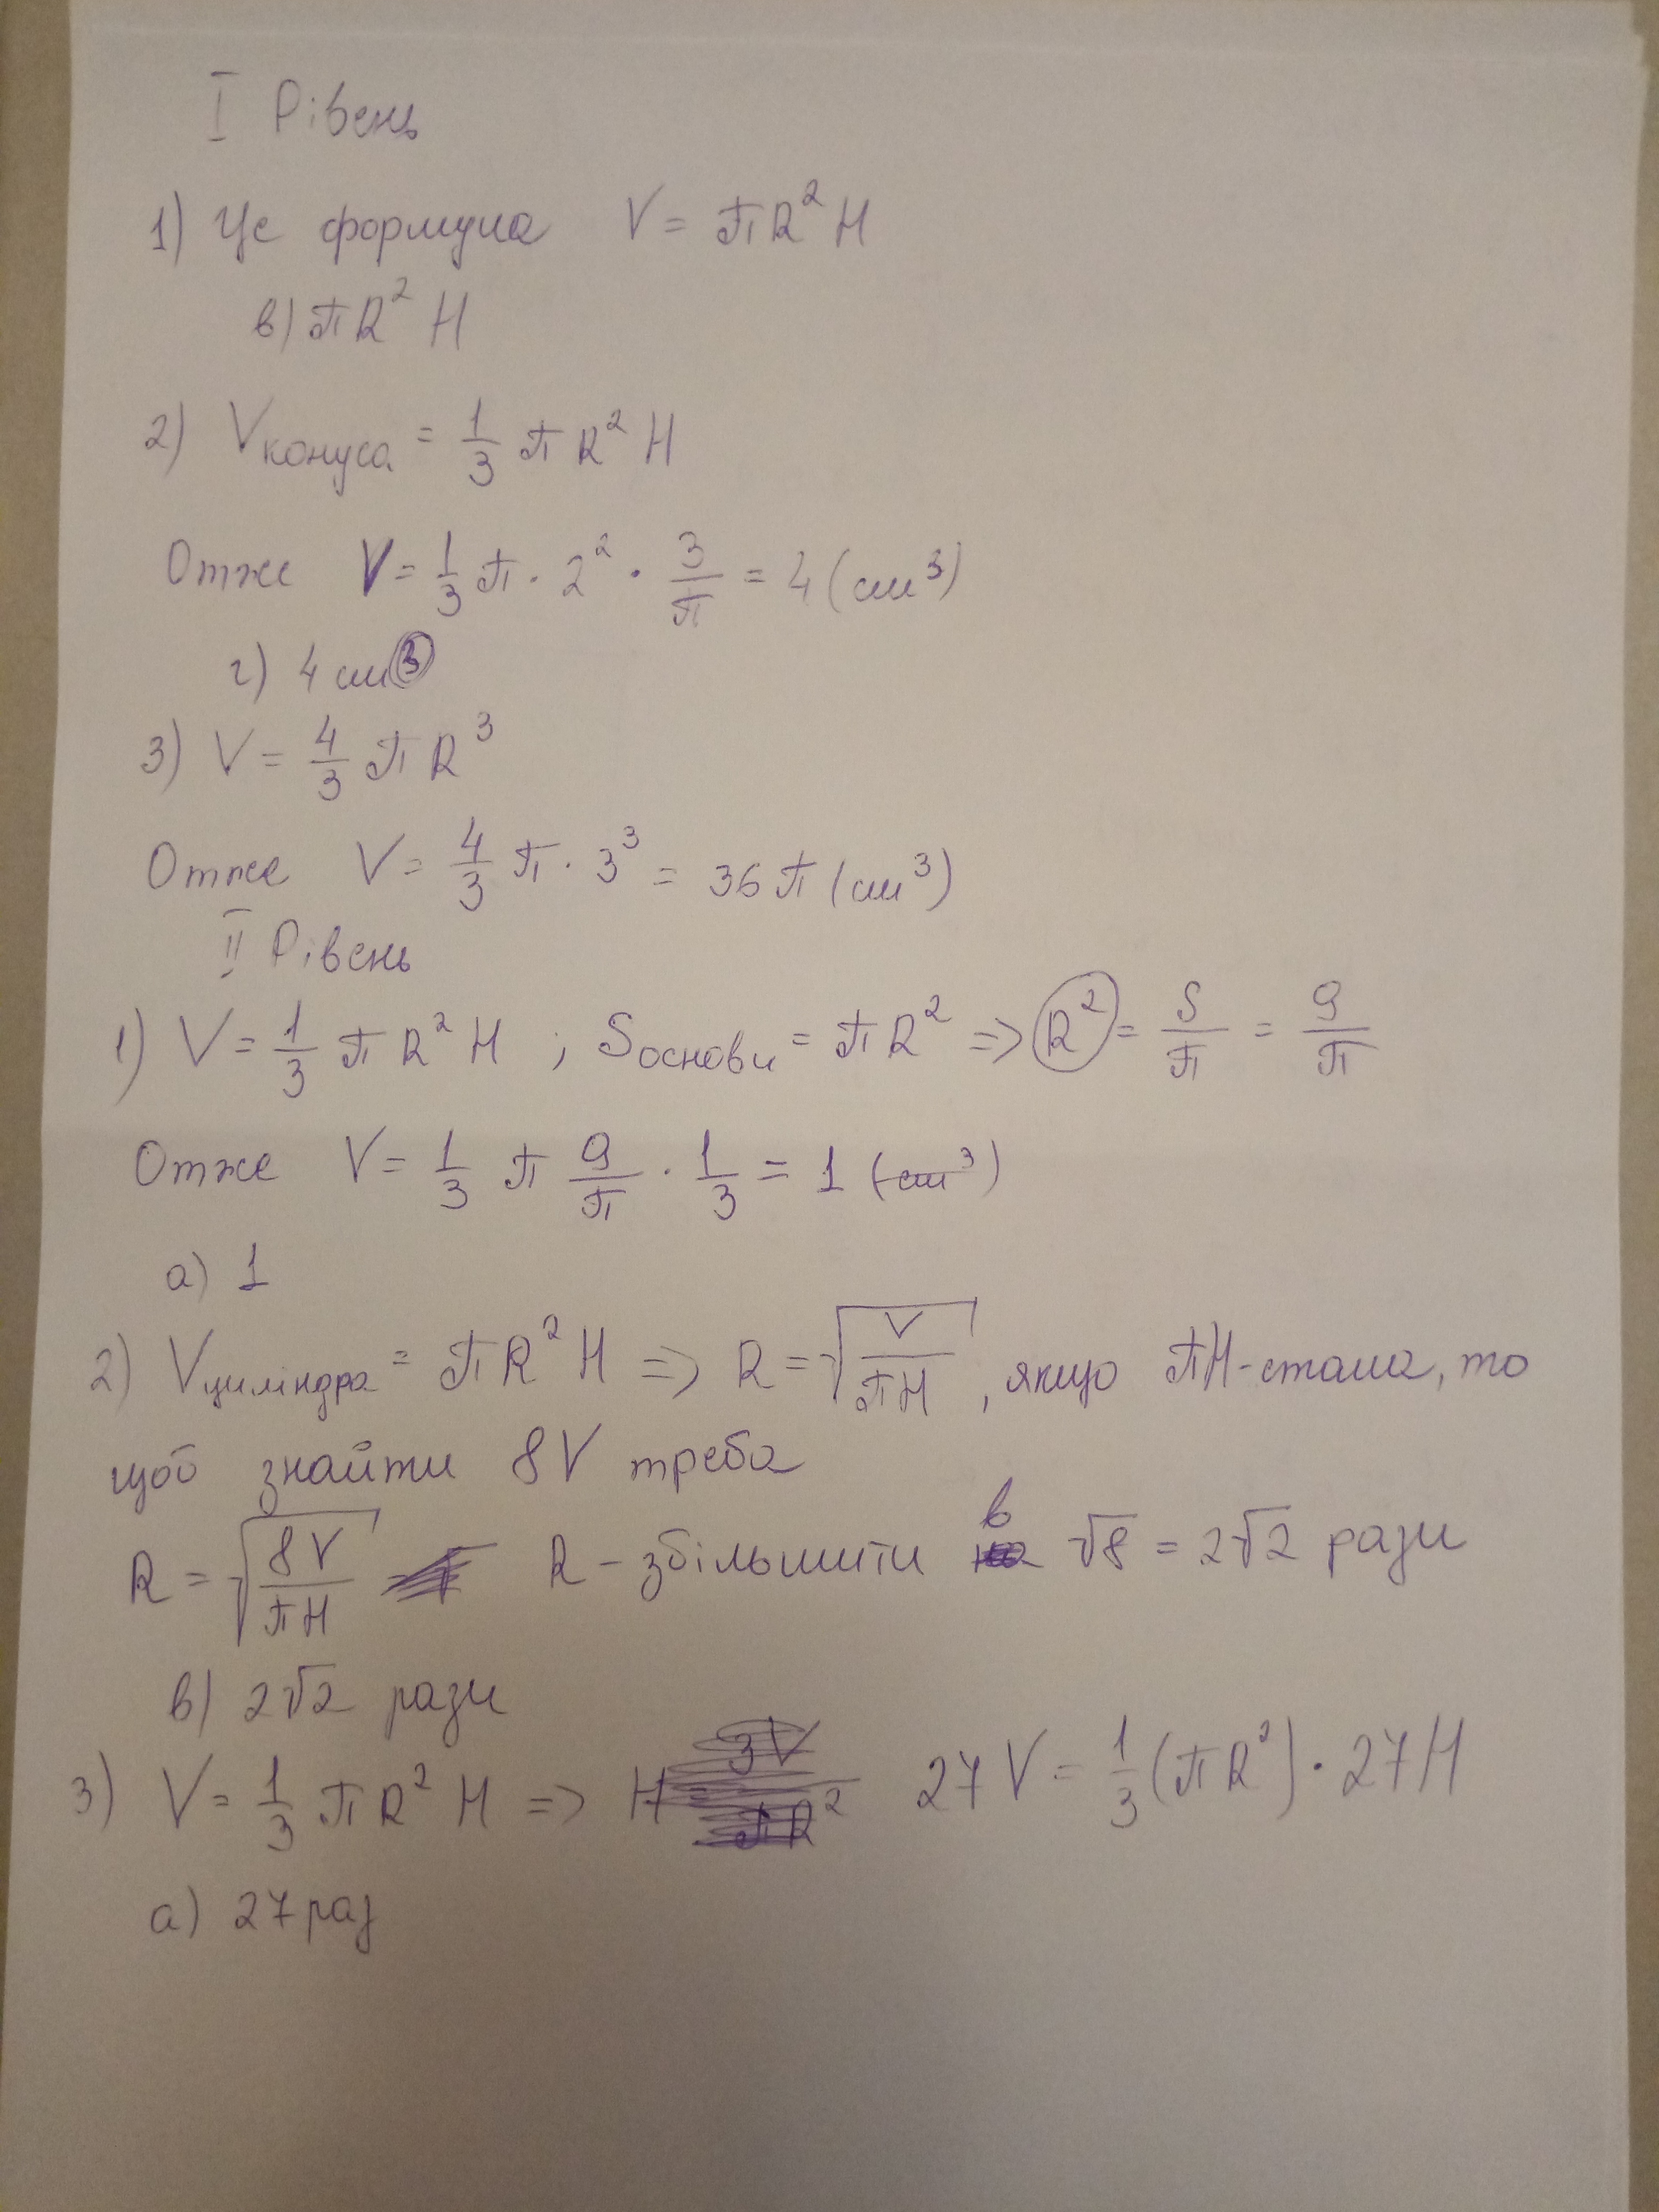 I Рівень
1) Це формула V = πR² H
в) πR² H
2) Vконуса = 1/3 π R² H
Отже V = 1/3 π · 2² · 3/π = 4 (см³)
г) 4 см³
3) V = 4/3 π R³
Отже V = 4/3 π · 3³ = 36 π (см³)
II Рівень
1) V = 1/3 π R² H ; Sоснови = π R² => R² = S/π = 9/π
Отже V = 1/3 π 9/π · 1/3 = 1 (см³)
а) 1
2) Vциліндра = π R² H => R = √(V/πH), якщо πH - стала, то
щоб знайти 8V треба
R = √(8V/πH) R - збільшити в √8 = 2√2 рази
в) 2√2 рази
3) V = 1/3 π R² H => H = 3V/πR² 27 V = 1/3 (π R²) · 27 H
а) 27 раз